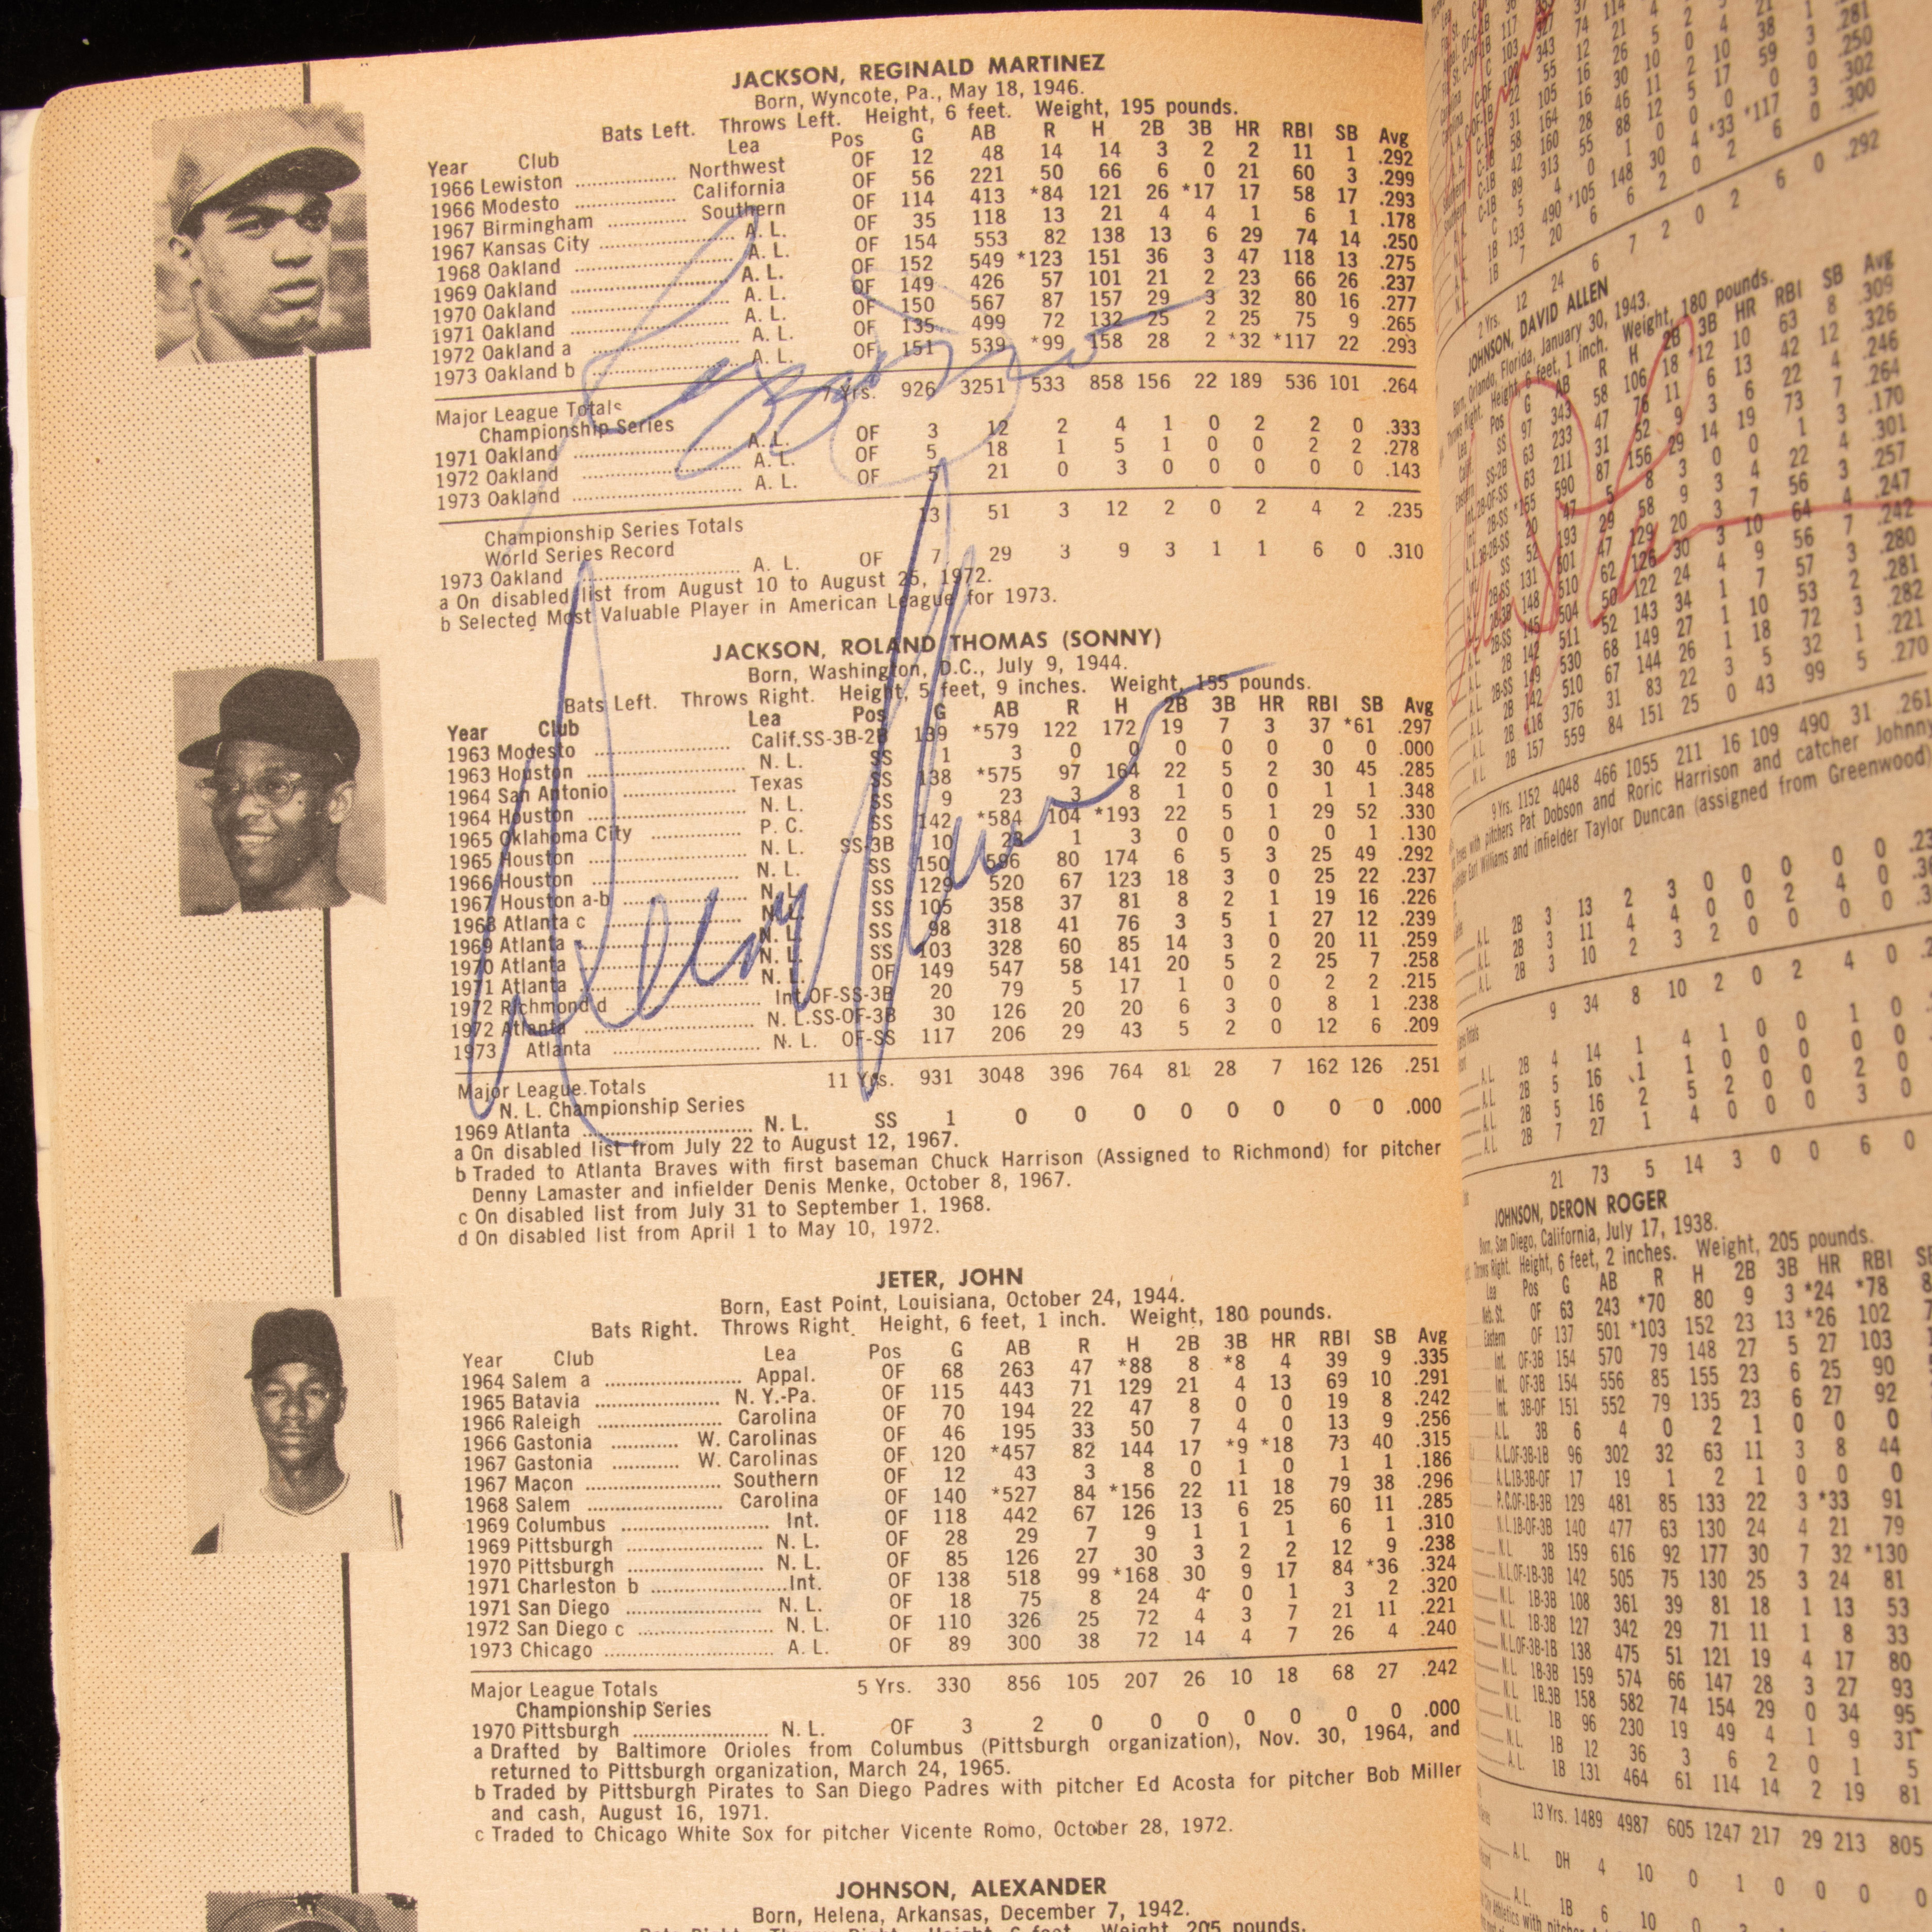 JACKSON, REGINALD MARTINEZ
Born, Wyncote, Pa., May 18, 1946.
Bats Left. Throws Left. Height, 6 feet. Weight, 195 pounds.
Year Club Lea Pos G AB R H 2B 3B HR RBI SB Avg
1966 Lewiston Northwest OF 12 48 14 14 3 2 2 11 1 .292
1966 Modesto California OF 56 221 50 66 6 0 21 60 3 .299
1967 Birmingham Southern OF 114 413 *84 121 26 *17 17 58 17 .293
1967 Kansas City A. L. OF 35 118 13 21 4 4 1 6 1 .178
1968 Oakland A. L. OF 154 553 82 138 13 6 29 74 14 .250
1969 Oakland A. L. OF 152 549 *123 151 36 3 47 118 13 .275
1970 Oakland A. L. OF 149 426 57 101 21 2 23 66 26 .237
1971 Oakland A. L. OF 150 567 87 157 29 3 32 80 16 .277
1972 Oakland a A. L. OF 135 499 72 132 25 2 25 75 9 .265
1973 Oakland b A. L. OF 151 539 *99 158 28 2 *32 *117 22 .293
Major League Totals 7 Yrs. 926 3251 533 858 156 22 189 536 101 .264
Championship Series
1971 Oakland A. L. OF 3 12 2 4 1 0 2 2 0 .333
1972 Oakland A. L. OF 5 18 1 5 1 0 0 2 2 .278
1973 Oakland A. L. OF 5 21 0 3 0 0 0 0 0 .143
Championship Series Totals 13 51 3 12 2 0 2 4 2 .235
World Series Record
1973 Oakland A. L. OF 7 29 3 9 3 1 1 6 0 .310
a On disabled list from August 10 to August 25, 1972.
b Selected Most Valuable Player in American League for 1973.
JACKSON, ROLAND THOMAS (SONNY)
Born, Washington, D.C., July 9, 1944.
Bats Left. Throws Right. Height, 5 feet, 9 inches. Weight, 155 pounds.
Year Club Lea Pos G AB R H 2B 3B HR RBI SB Avg
1963 Modesto Calif. SS-3B-2B 139 *579 122 172 19 7 3 37 *61 .297
1963 Houston N. L. SS 1 3 0 0 0 0 0 0 0 .000
1964 San Antonio Texas SS 138 *575 97 164 22 5 2 30 45 .285
1964 Houston N. L. SS 9 23 3 8 1 0 0 1 1 .348
1965 Oklahoma City P. C. SS 142 *584 104 *193 22 5 1 29 52 .330
1965 Houston N. L. SS-3B 10 23 1 3 0 0 0 0 1 .130
1966 Houston N. L. SS 150 596 80 174 6 5 3 25 49 .292
1967 Houston a-b N. L. SS 129 520 67 123 18 3 0 25 22 .237
1968 Atlanta c N. L. SS 105 358 37 81 8 2 1 19 16 .226
1969 Atlanta N. L. SS 98 318 41 76 3 5 1 27 12 .239
1970 Atlanta N. L. SS 103 328 60 85 14 3 0 20 11 .259
1971 Atlanta N. L. OF 149 547 58 141 20 5 2 25 7 .258
1972 Richmond d Int. OF-SS-3B 20 79 5 17 1 0 0 2 2 .215
1972 Atlanta N. L. SS-OF-3B 30 126 20 20 6 3 0 8 1 .238
1973 Atlanta N. L. OF-SS 117 206 29 43 5 2 0 12 6 .209
Major League Totals 11 Yrs. 931 3048 396 764 81 28 7 162 126 .251
N. L. Championship Series
1969 Atlanta N. L. SS 1 0 0 0 0 0 0 0 0 .000
a On disabled list from July 22 to August 12, 1967.
b Traded to Atlanta Braves with first baseman Chuck Harrison (Assigned to Richmond) for pitcher
Denny Lamaster and infielder Denis Menke, October 8, 1967.
c On disabled list from July 31 to September 1. 1968.
d On disabled list from April 1 to May 10, 1972.
JETER, JOHN
Born, East Point, Louisiana, October 24, 1944.
Bats Right. Throws Right. Height, 6 feet, 1 inch. Weight, 180 pounds.
Year Club Lea Pos G AB R H 2B 3B HR RBI SB Avg
1964 Salem a Appal. OF 68 263 47 *88 8 *8 4 39 9 .335
1965 Batavia N. Y.-Pa. OF 115 443 71 129 21 4 13 69 10 .291
1966 Raleigh Carolina OF 70 194 22 47 8 0 0 19 8 .242
1966 Gastonia W. Carolinas OF 46 195 33 50 7 4 0 13 9 .256
1967 Gastonia W. Carolinas OF 120 *457 82 144 17 *9 *18 73 40 .315
1967 Macon Southern OF 12 43 3 8 0 1 0 1 1 .186
1968 Salem Carolina OF 140 *527 84 *156 22 11 18 79 38 .296
1969 Columbus Int. OF 118 442 67 126 13 6 25 60 11 .285
1969 Pittsburgh N. L. OF 28 29 7 9 1 1 1 6 1 .310
1970 Pittsburgh N. L. OF 85 126 27 30 3 2 2 12 9 .238
1971 Charleston b Int. OF 138 518 99 *168 30 9 17 84 *36 .324
1971 San Diego N. L. OF 18 75 8 24 4 0 1 3 2 .320
1972 San Diego c N. L. OF 110 326 25 72 4 3 7 21 11 .221
1973 Chicago A. L. OF 89 300 38 72 14 4 7 26 4 .240
Major League Totals 5 Yrs. 330 856 105 207 26 10 18 68 27 .242
Championship Series
1970 Pittsburgh N. L. OF 3 2 0 0 0 0 0 0 0 .000
a Drafted by Baltimore Orioles from Columbus (Pittsburgh organization), Nov. 30, 1964, and
returned to Pittsburgh organization, March 24, 1965.
b Traded by Pittsburgh Pirates to San Diego Padres with pitcher Ed Acosta for pitcher Bob Miller
and cash, August 16, 1971.
c Traded to Chicago White Sox for pitcher Vicente Romo, October 28, 1972.
JOHNSON, ALEXANDER
Born, Helena, Arkansas, December 7, 1942.
JOHNSON, DAVID ALLEN
Born, Orlando, Florida, January 30, 1943.
Throws Right. Height, 6 feet, 1 inch. Weight, 180 pounds.
9 Yrs. 1152 4048 466 1055 211 16 109 490 31 .261
pitchers Pat Dobson and Roric Harrison and catcher Johnny
Earl Williams and infielder Taylor Duncan (assigned from Greenwood)
JOHNSON, DERON ROGER
Born, San Diego, California, July 17, 1938.
Throws Right. Height, 6 feet, 2 inches. Weight, 205 pounds.
Lea Pos G AB R H 2B 3B HR RBI
OF 63 243 *70 80 9 3 *24 *78
Eastern OF 137 501 *103 152 23 13 *26 102
Int. OF-3B 154 570 79 148 27 5 27 103
Int. OF-3B 154 556 85 155 23 6 25 90
Int. 3B-OF 151 552 79 135 23 6 27 92
A.L. 3B 6 4 0 2 1 0 0 0
A.L. OF-3B-1B 96 302 32 63 11 3 8 44
A.L. 1B-3B-OF 17 19 1 2 1 0 0 0
P.C. OF-1B-3B 129 481 85 133 22 3 *33 91
N.L. 1B-OF-3B 140 477 63 130 24 4 21 79
N.L. 3B 159 616 92 177 30 7 32 *130
N.L. OF-1B-3B 142 505 75 130 25 3 24 81
N.L. 1B-3B 108 361 39 81 18 1 13 53
N.L. 1B-3B 127 342 29 71 11 1 8 33
N.L. OF-3B-1B 138 475 51 121 19 4 17 80
N.L. 1B-3B 159 574 66 147 28 3 27 93
N.L. 1B.3B 158 582 74 154 29 0 34 95
N.L. 1B 96 230 19 49 4 1 9 31
N.L. 1B 12 36 3 6 2 0 1 5
A.L. 1B 131 464 61 114 14 2 19 81
13 Yrs. 1489 4987 605 1247 217 29 213 805
A.L. DH 4 10 0 1 0 0 0 0